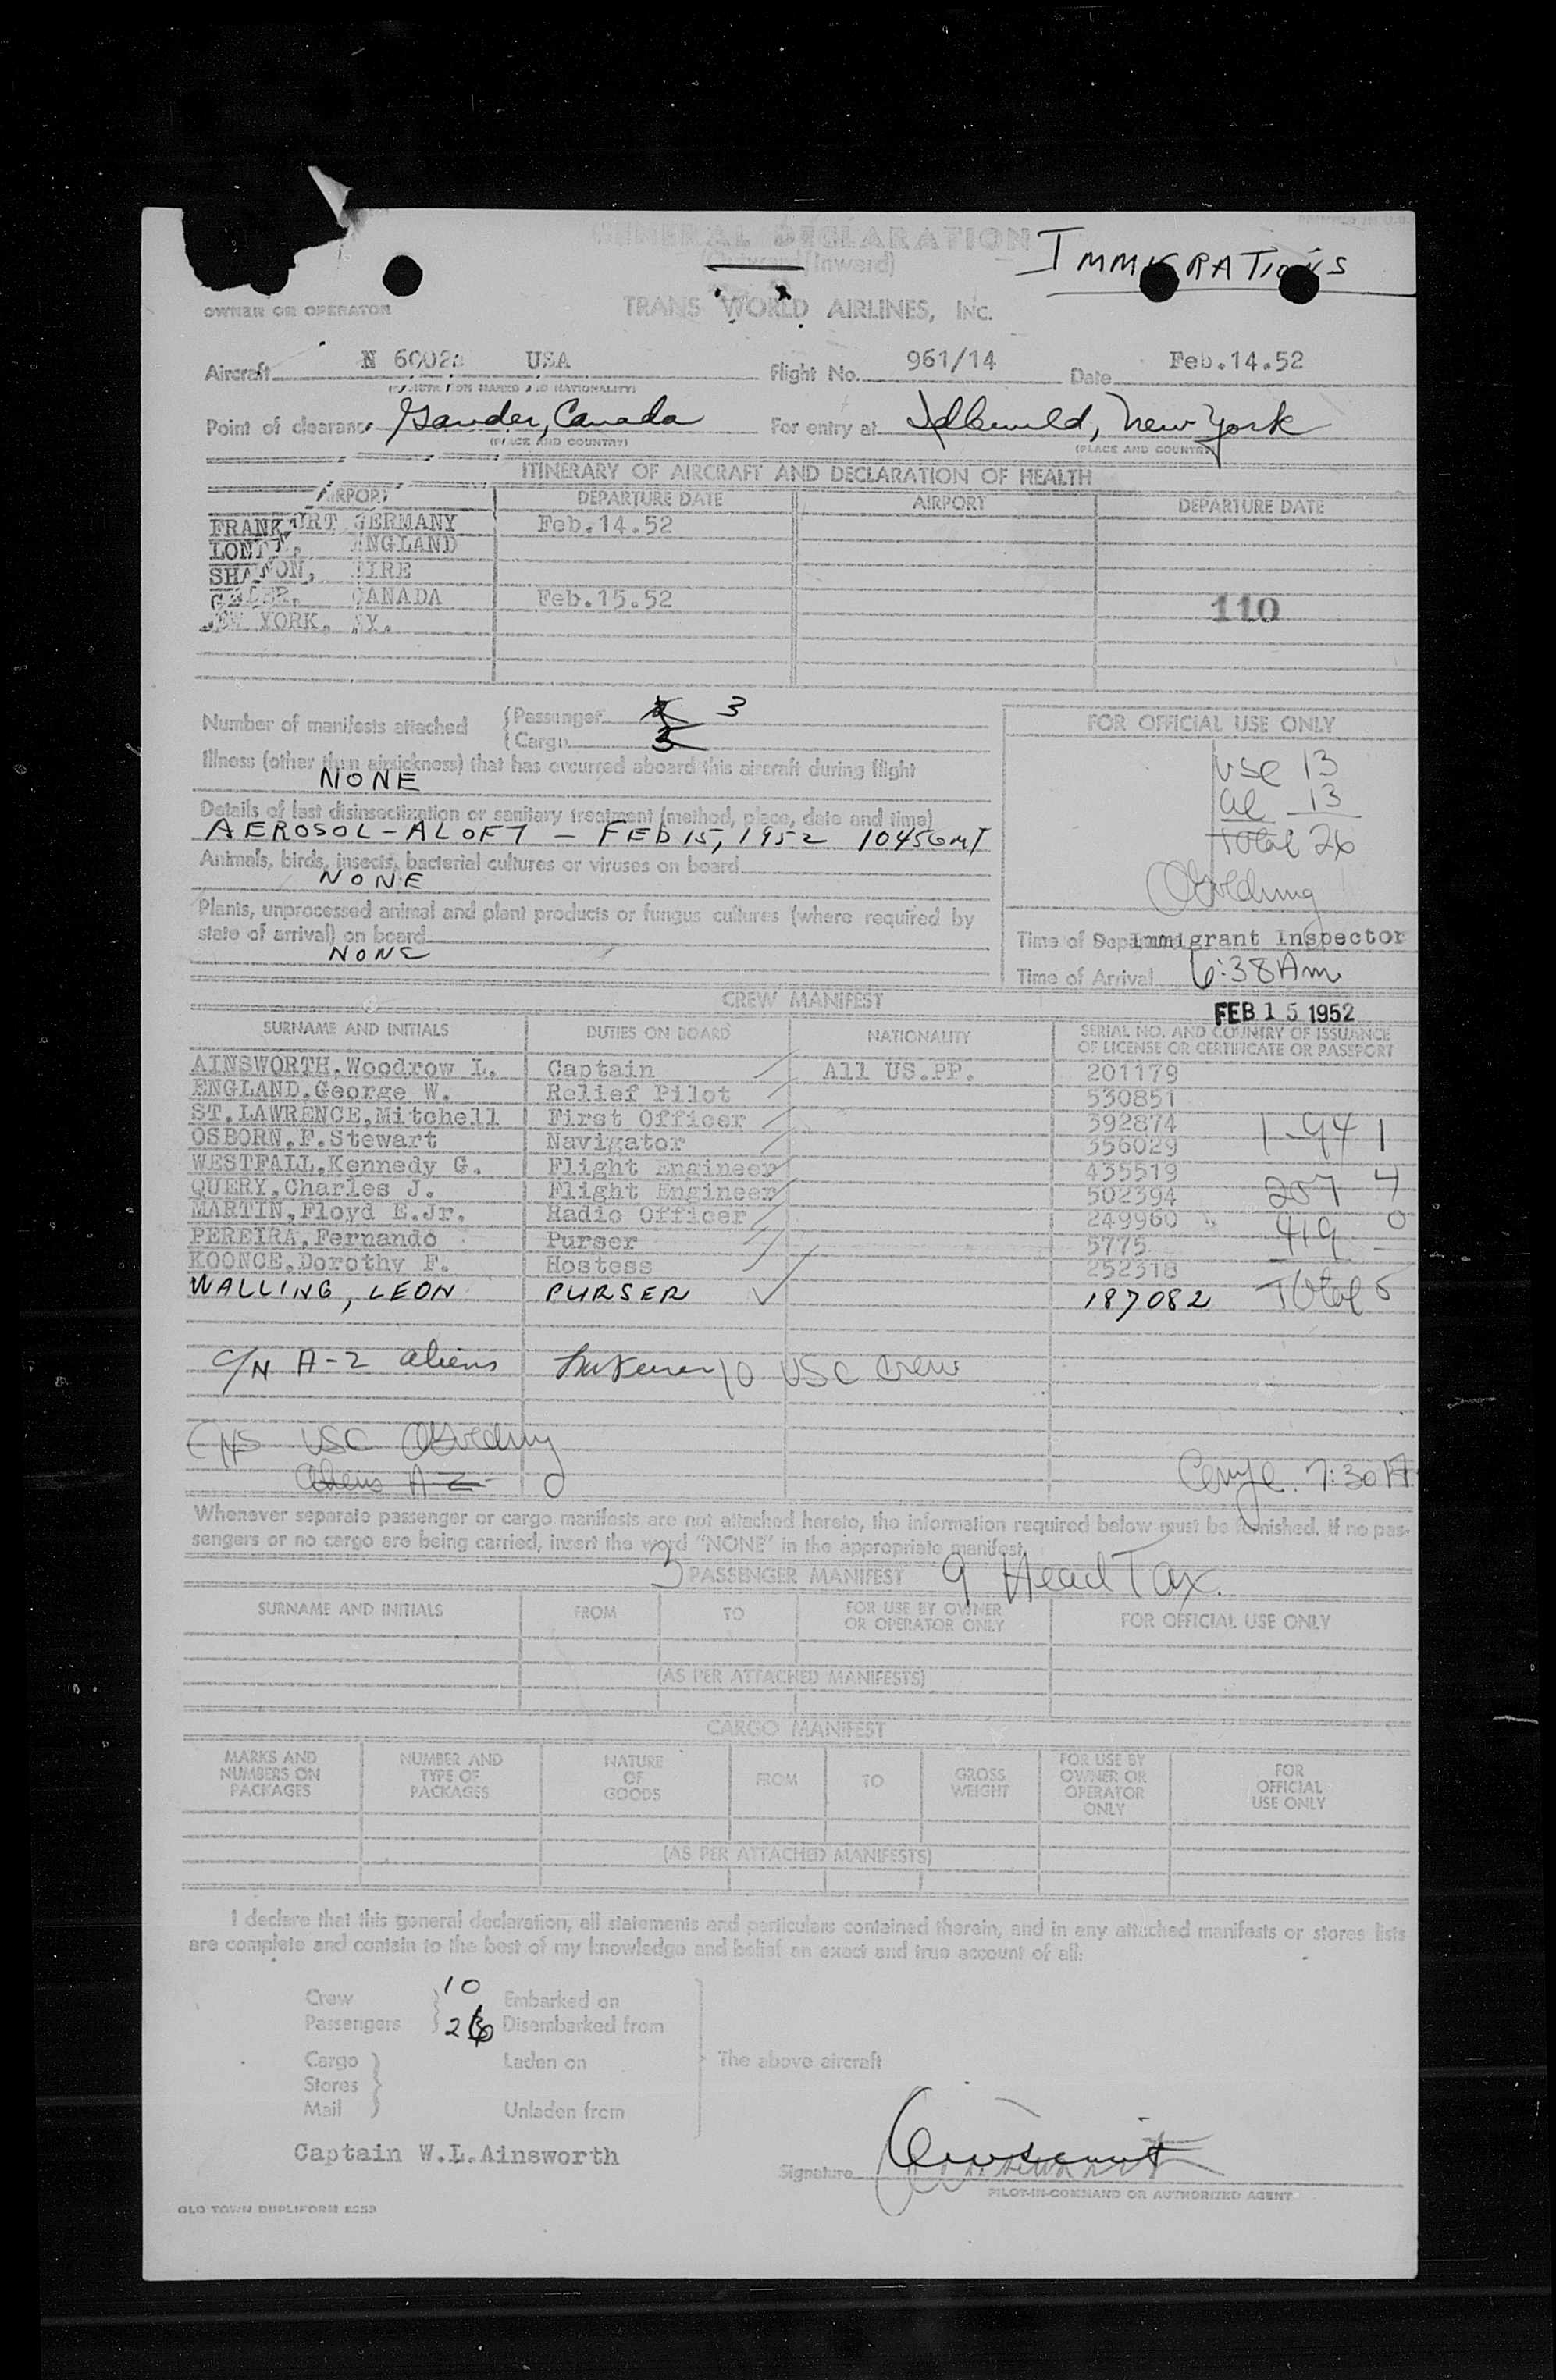 GENERAL DECLARATION
(Outward/Inward)
IMMIGRATIONS
OWNER OR OPERATOR
TRANS WORLD AIRLINES, INC.
Aircraft N 6002 USA Flight No. 961/14 Date Feb.14.52
Point of clearance Gander, Canada For entry at Idlewild, New York
(PLACE AND COUNTRY) (PLACE AND COUNTRY)
ITINERARY OF AIRCRAFT AND DECLARATION OF HEALTH
AIRPORT DEPARTURE DATE AIRPORT DEPARTURE DATE
FRANKFURT GERMANY Feb.14.52
LONDON, ENGLAND
SHANNON, EIRE
GANDER, CANADA Feb.15.52
110
NEW YORK, NY.
Number of manifests attached
(Passenger 3
(Cargo 3
FOR OFFICIAL USE ONLY
Illness (other than airsickness) that has occurred aboard this aircraft during flight
NONE
USC 13
al 13
Total 26
Details of last disinsectization or sanitary treatment (method, place, date and time)
AEROSOL-ALOFT - FEB 15, 1952 1045GMT
Animals, birds, insects, bacterial cultures or viruses on board
NONE
Plants, unprocessed animal and plant products or fungus cultures (where required by
state of arrival) on board
NONE
Time of Immigrant Inspector
Time of Arrival 6:38 Am
FEB 15 1952
CREW MANIFEST
SURNAME AND INITIALS DUTIES ON BOARD NATIONALITY SERIAL NO. AND COUNTRY OF ISSUANCE
OF LICENSE OR CERTIFICATE OR PASSPORT
AINSWORTH,Woodrow L. Captain All US.PP. 201179
ENGLAND,George W. Relief Pilot 530851
ST.LAWRENCE,Mitchell First Officer 392874
OSBORN,F.Stewart Navigator 356029 1-94 1
WESTFALL,Kennedy G. Flight Engineer 435519
QUERY,Charles J. Flight Engineer 502394 257 4
MARTIN,Floyd E.Jr. Radio Officer 249960
PEREIRA,Fernando Purser 5775 419 0
KOONCE,Dorothy F. Hostess 252318
WALLING, LEON PURSER 187082 Total 5
C/N A-2 aliens 10 USC Crew
USC
aliens A-2
7:30 A
Whenever separate passenger or cargo manifests are not attached hereto, the information required below must be furnished. If no pas-
sengers or no cargo are being carried, insert the word "NONE" in the appropriate manifest.
3 PASSENGER MANIFEST 9 Head Tax.
SURNAME AND INITIALS FROM TO FOR USE BY OWNER
OR OPERATOR ONLY FOR OFFICIAL USE ONLY
(AS PER ATTACHED MANIFESTS)
CARGO MANIFEST
MARKS AND
NUMBERS ON
PACKAGES
NUMBER AND
TYPE OF
PACKAGES
NATURE
OF
GOODS
FROM
TO
GROSS
WEIGHT
FOR USE BY
OWNER OR
OPERATOR
ONLY
FOR
OFFICIAL
USE ONLY
(AS PER ATTACHED MANIFESTS)
I declare that this general declaration, all statements and particulars contained therein, and in any attached manifests or stores lists
are complete and contain to the best of my knowledge and belief an exact and true account of all:
Crew 10 Embarked on
Passengers 26 Disembarked from
Cargo Laden on The above aircraft
Stores
Mail Unladen from
Captain W.L.Ainsworth
Signature
PILOT-IN-COMMAND OR AUTHORIZED AGENT
OLD TOWN DUPLIFORM E953